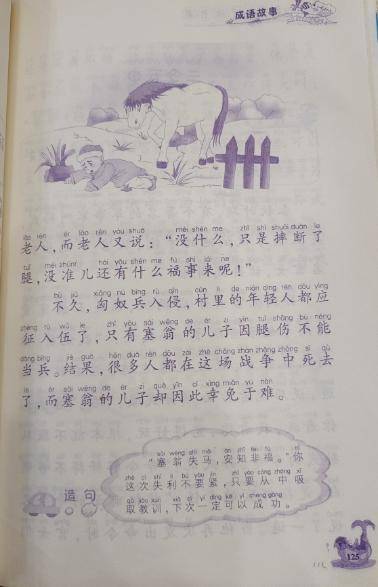 成语故事
lǎo rén ér lǎo rén yòu shuō méi shén me zhǐ shì shuāi duàn le
老人，而老人又说：“没什么，只是摔断了
tuǐ méi zhǔnr hái yǒu shén me fú shì lái ne
腿，没准儿还有什么福事来呢！”
bù jiǔ xiōng nú bīng rù qīn cūn lǐ de nián qīng rén dōu yìng
不久，匈奴兵入侵，村里的年轻人都应
zhēng rù wǔ le zhǐ yǒu sài wēng de ér zi yīn tuǐ shāng bù néng
征入伍了，只有塞翁的儿子因腿伤不能
dāng bīng jié guǒ hěn duō rén dōu zài zhè chǎng zhàn zhēng zhōng sǐ qù
当兵。结果，很多人都在这场战争中死去
le ér sài wēng de ér zi què yīn cǐ xìng miǎn yú nàn
了，而塞翁的儿子却因此幸免于难。
造句
sài wēng shī mǎ ān zhī fēi fú nǐ
“塞翁失马，安知非福。”你
zhè cì shī lì bú yào jǐn zhǐ yào cóng zhōng xī
这次失利不要紧，只要从中吸
qǔ jiào xùn xià cì yí dìng kě yǐ chéng gōng
取教训，下次一定可以成功。
125